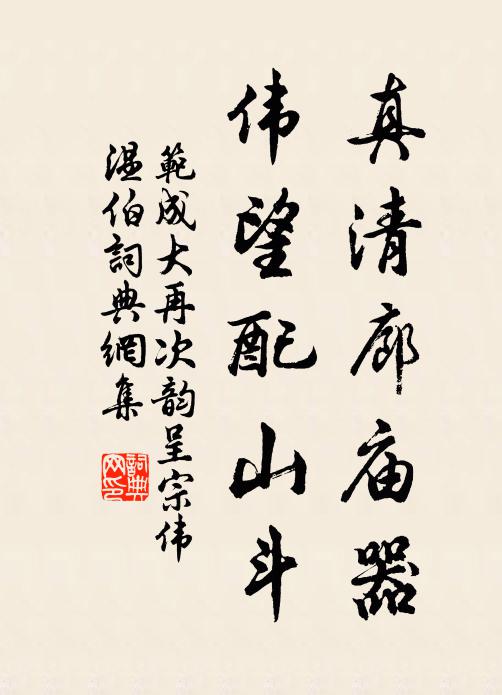 真清廊庙器
伟望配山斗
範成大再次韵呈宗伟
温伯詞典網集
詞典网印